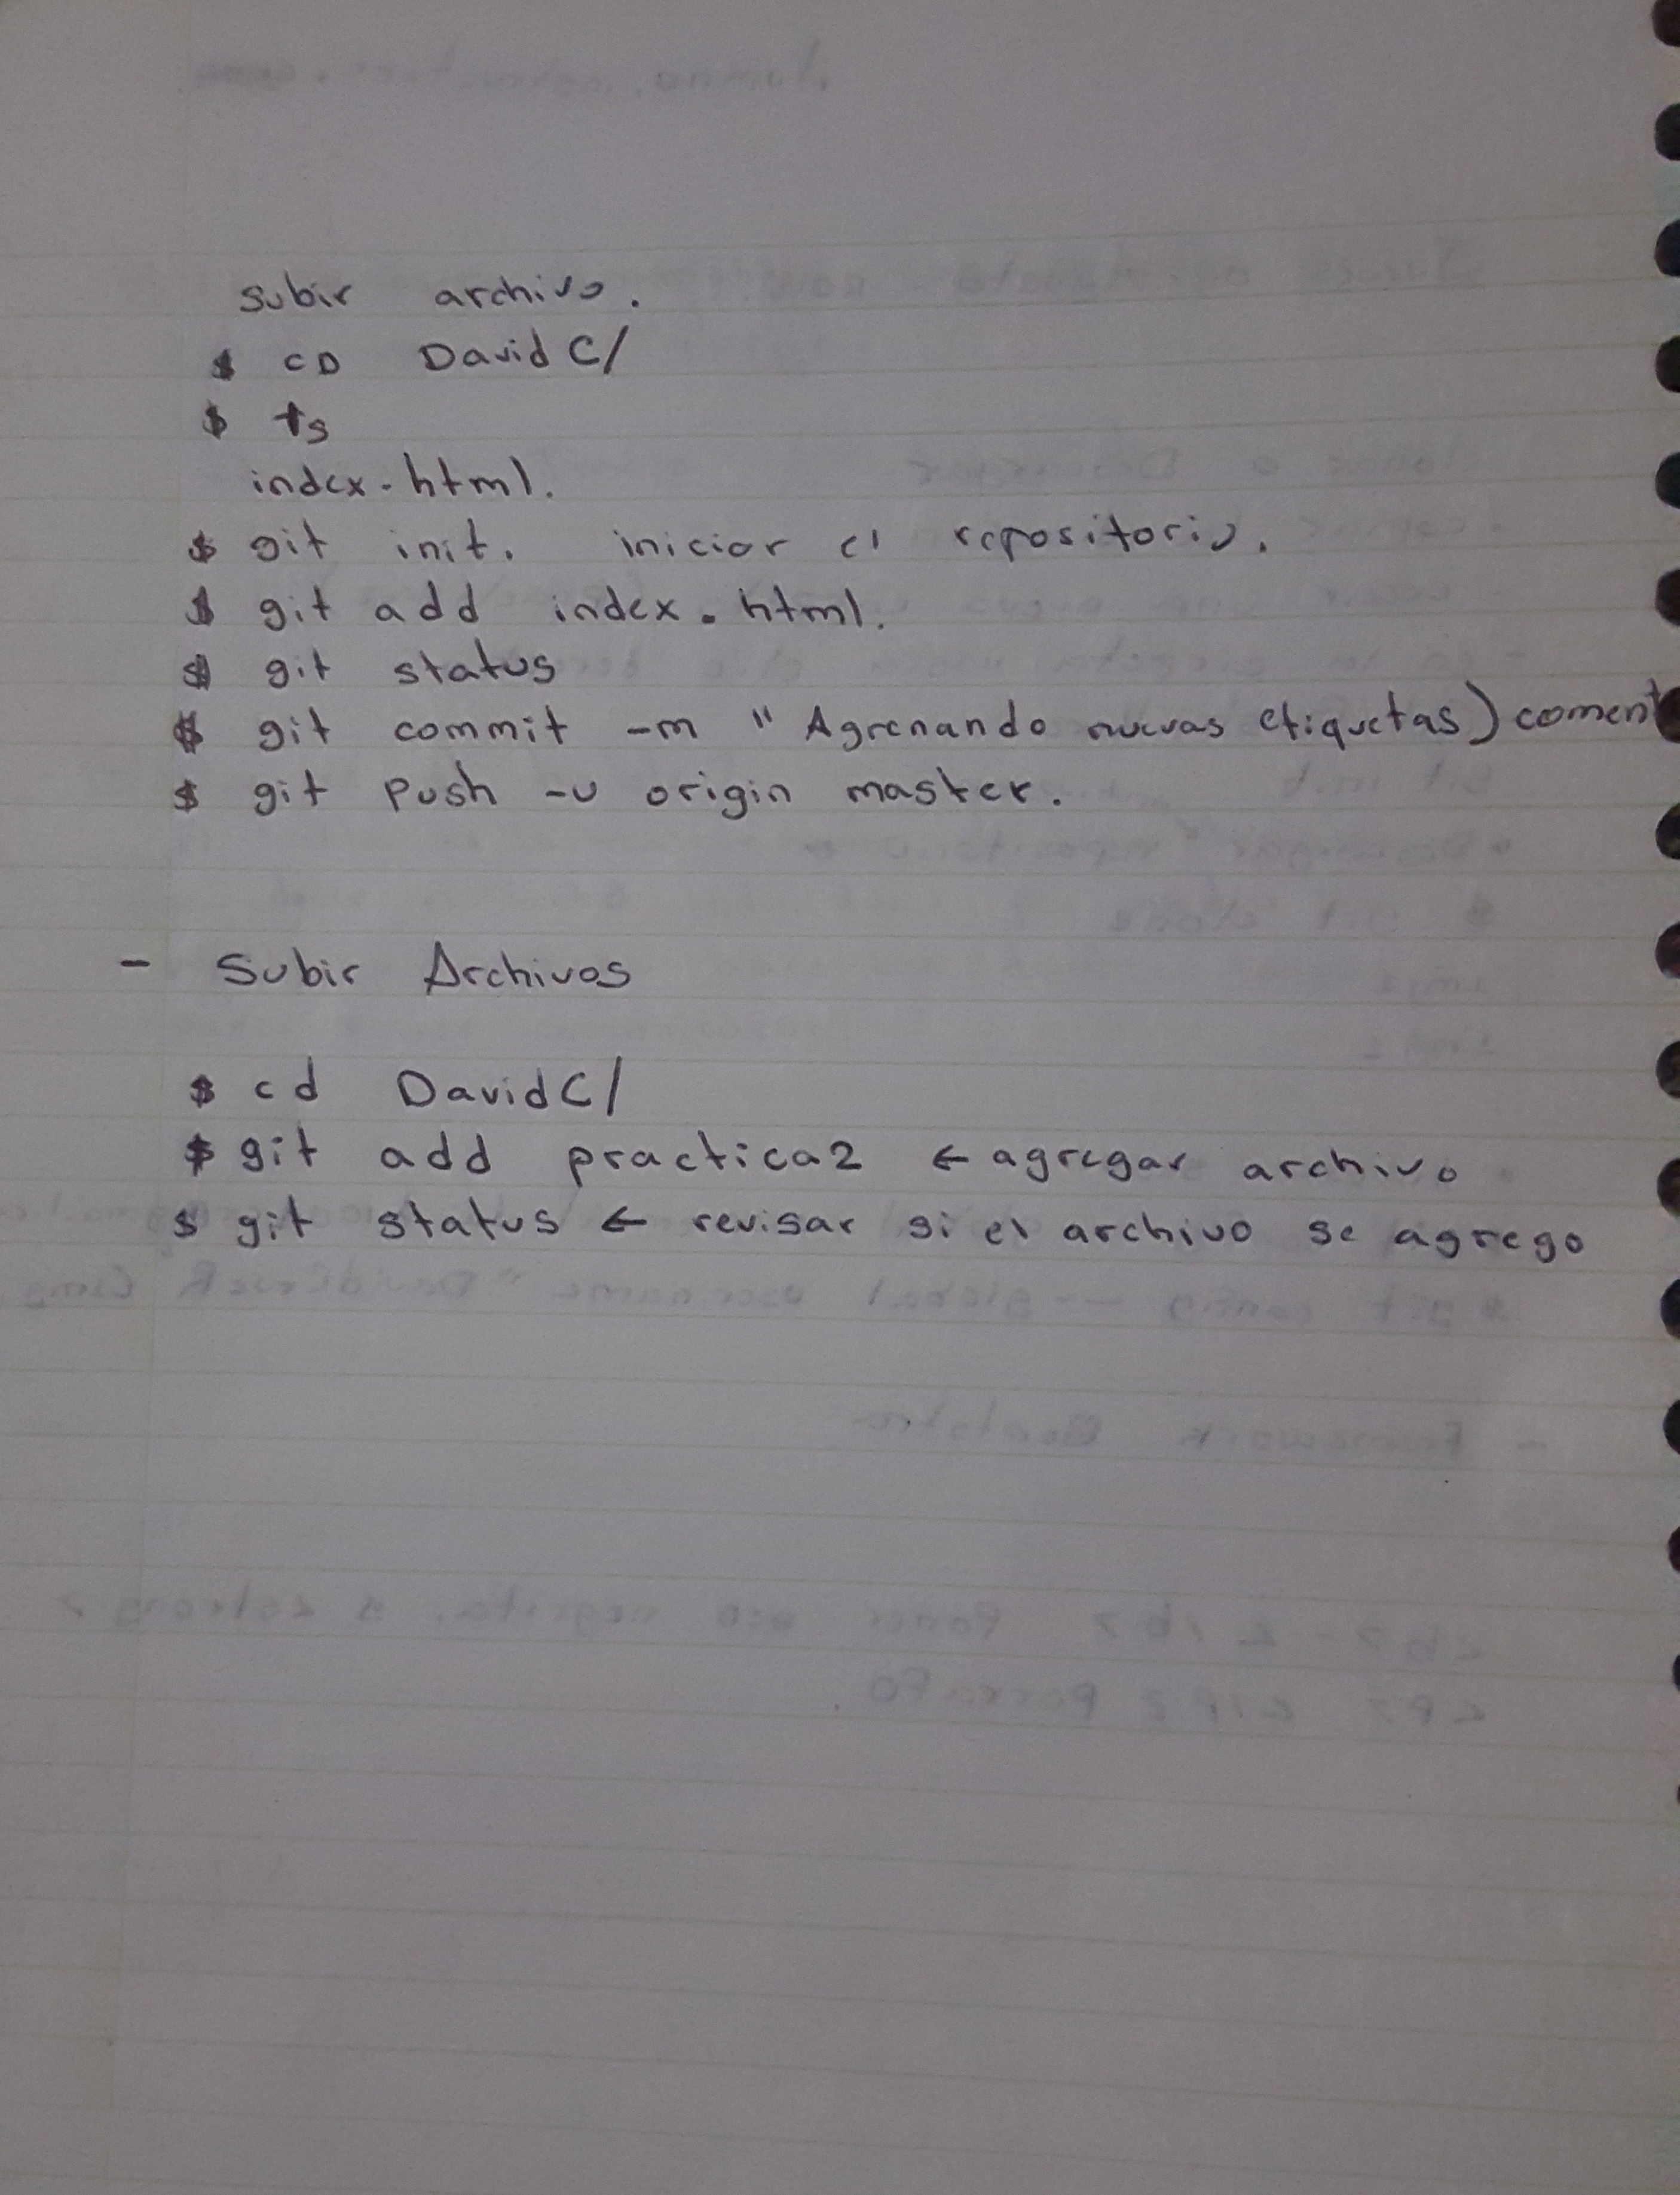 subir archivo.
$ CD David C/
$ ts
index.html.
$ git init. iniciar el repositorio.
$ git add index.html.
$ git status
$ git commit -m "Agrenando nuevas etiquetas) coment
$ git push -u origin master.
- Subir Archivos
$ cd David C/
$ git add practica2 ← agregar archivo
$ git status ← revisar si el archivo se agrego